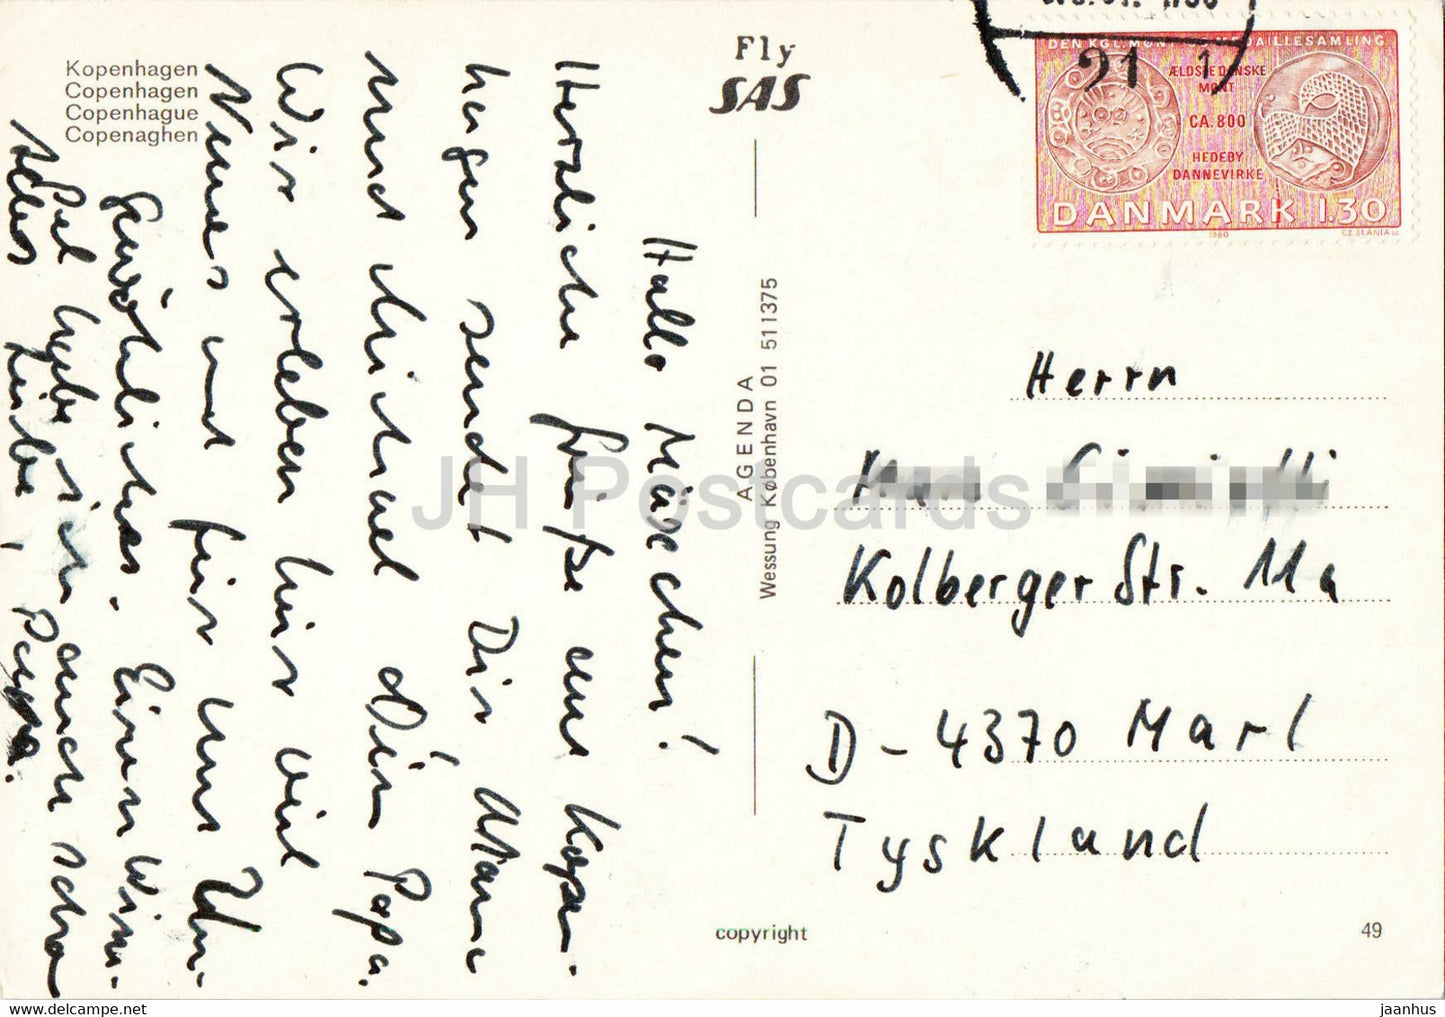 Kopenhagen
Copenhagen
Copenhague
Copenaghen
Fly
SAS
DEN KGL. MØN AILLESAMLING
ÆLDSTE DANSKE
MØNT
CA. 800
HEDEBY
DANNEVIRKE
DANMARK 1.30
1980
CZ. SLANIA
91 1
Hallo Mäuschen!
Herzliche Grüße aus Kopen-
hagen sendet Dir Mama
und Michael dein Papa.
Wir erleben hier viel
Neues und für uns Un-
gewöhnliches. Einen Wim-
pel habe ich auch schon
Liebe, Papa.
AGENDA
Wessung København 01 511375
Herrn
Kolberger Str. 11a
D-4370 Marl
Tyskland
copyright
49
JH Postcards
www.delcampe.net
jaanhus